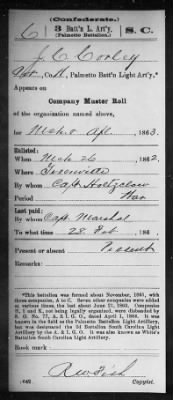 (Confederate.)
6 | 3 Batt'n L. Art'y. | S. C.
(Palmetto Battalion.)
J. C. Corley
Pvt, Co. K, Palmetto Batt'n Light Art'y.*
Appears on
Company Muster Roll
of the organization named above,
for Mch & Apl, 1863.
Enlisted:
When Mch 26, 1862.
Where Greenville
By whom Capt Holtzclaw
Period War
Last paid:
By whom Capt. Marshal
To what time 28 Feb, 186
Present or absent Present
Remarks:
*This battalion was formed about November, 1861, with
three companies, A to C. Seven other companies were added
at various times, the last about June 21, 1862. Companies
H, I and K, not being legally organized, were disbanded by
S. O. No. 77, A. & I. G. O., dated April 1, 1864. It was
also known as the Palmetto Battalion Light Artillery,
but was designated the 3d Battalion South Carolina Light
Artillery by the A. & I. G. O. It was also known as White's
Battalion South Carolina Light Artillery.
Book mark:
R W Fish
(642) Copyist.